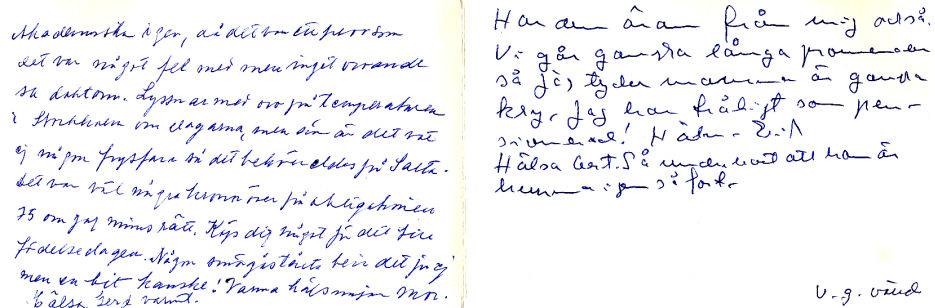 Akademiska igen, då det var ett prov som
det var något fel med men inget oroande
sa doktorn. Lyssnar med oro på temperaturen
i Stockholm om dagarna, men än är det väl
ej någon frysfara så det behöver eldas på Salta-
Det var väl några kronor över på obligationen
75 om jag minns rätt. Köp dig något för det till
födelsedagen. Någon smörgåstårta blir det ju ej
men en bit kanske! Varma hälsningar Mor.
Hälsa Gerd varmt.
Har den äran från mig också.
Vi går ganska långa promenader
så jag tycker mamma är ganska
kry, Jag har tråkigt som pen-
sionerad! Hälsn. Erik
Hälsa Gert. Så underbart att han är
hemma igen så fort.
V. g. vänd